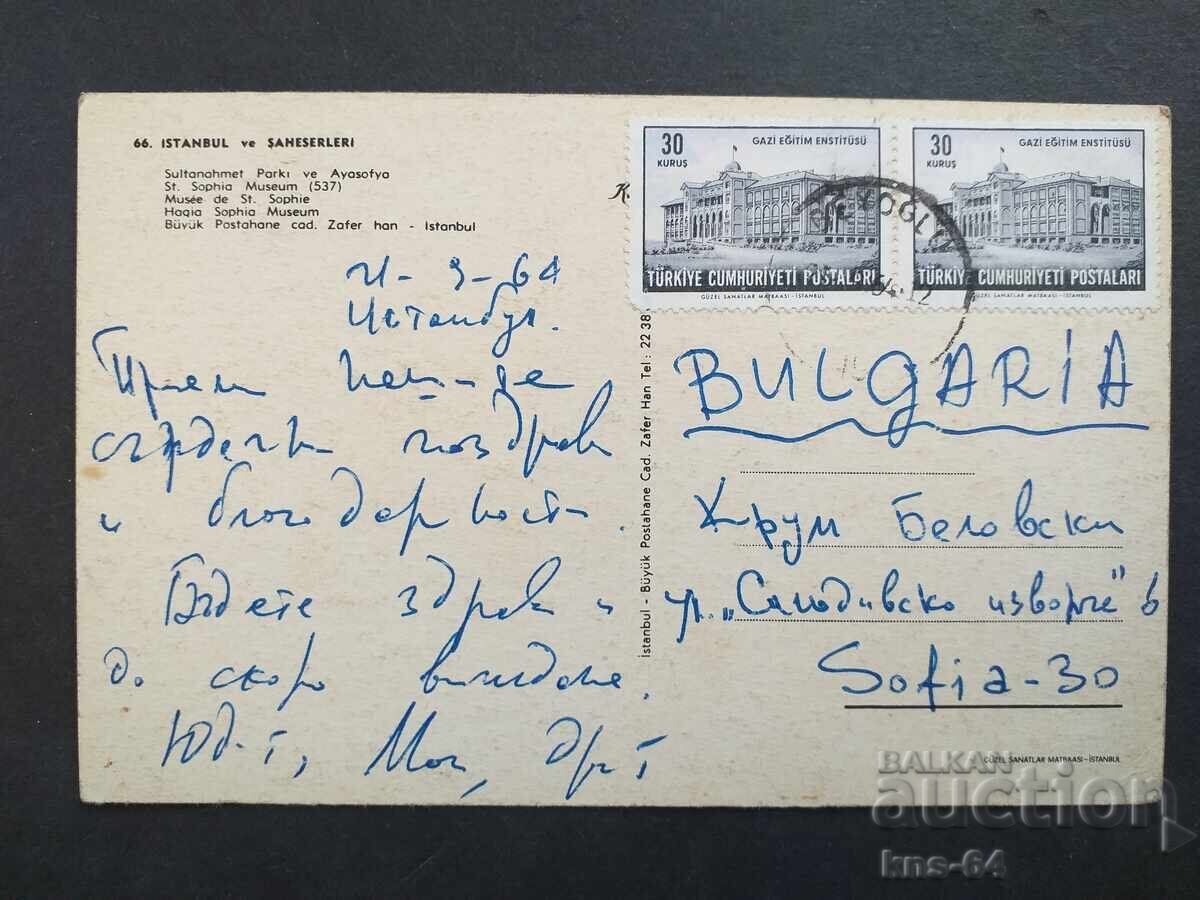 66. ISTANBUL ve ŞAHESERLERİ
Sultanahmet Parkı ve Ayasofya
St. Sophia Museum (537)
Musée de St. Sophie
Hagia Sophia Museum
Büyük Postahane cad. Zafer han - Istanbul
30 KURUŞ
GAZİ EĞİTİM ENSTİTÜSÜ
TÜRKİYE CUMHURİYETİ POSTALARI
GÜZEL SANATLAR MATBAASI-İSTANBUL
30 KURUŞ
GAZİ EĞİTİM ENSTİTÜSÜ
TÜRKİYE CUMHURİYETİ POSTALARI
GÜZEL SANATLAR MATBAASI-İSTANBUL
BEYOĞLU
-64
Истанбул.
Приеми
сърдечен поздрав
и благодарност.
Бъдете здрави и
до скоро виждане.
İstanbul - Büyük Postahane Cad. Zafer Han Tel: 22 38
BULGARIA
Крум Беловски
ул. „Самодивско изворче" 6
Sofia-30
GÜZEL SANATLAR MATBAASI-İSTANBUL
BALKAN
auction
kns-64